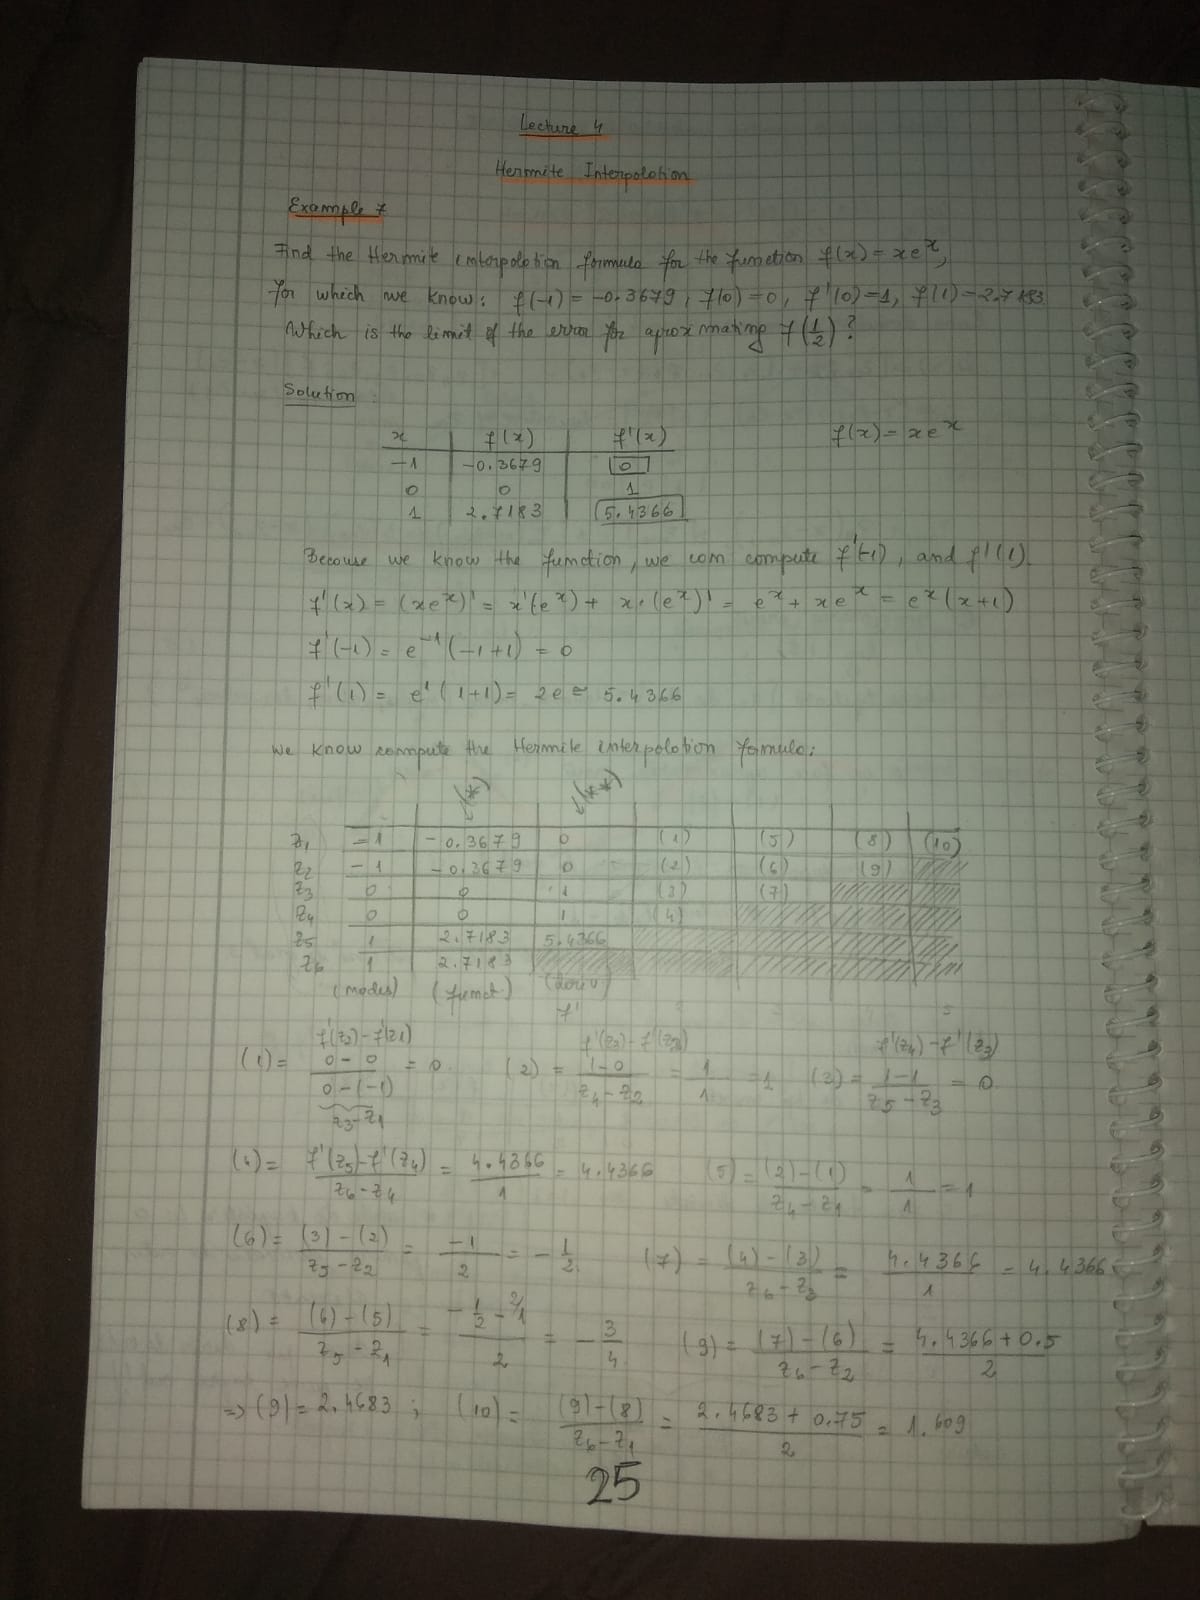 Lecture 4
Hermite Interpolation
Example 7
Find the Hermite interpolation formula for the function f(x) = xe^x,
for which we know: f(-1) = -0.3679, f(0)=0, f'(0)=1, f(1)=2.7183.
Which is the limit of the error for aproximating f(1/2)?
Solution
x | f(x) | f'(x) f(x) = xe^x
-1 | -0.3679 | 0
0 | 0 | 1
1 | 2.7183 | 5.4366
Because we know the function, we com compute f'(-1), and f'(1).
f'(x) = (xe^x)' = x'(e^x) + x·(e^x)' = e^x + xe^x = e^x(x+1)
f'(-1) = e^-1 (-1+1) = 0
f'(1) = e^1 (1+1) = 2e ≃ 5.4366
We know compute the Hermite interpolation formula:
(*) (**)
z1 | -1 | -0.3679 | 0 | (1) | (5) | (8) | (10)
z2 | -1 | -0.3679 | 0 | (2) | (6) | (9)
z3 | 0 | 0 | 1 | (3) | (7)
z4 | 0 | 0 | 1 | (4)
z5 | 1 | 2.7183 | 5.4366
z6 | 1 | 2.7183
(nodes) (funct) (deriv)
f'
f'(z2)-f'(z1) f'(z3)-f'(z2) f'(z4)-f'(z3)
(1) = (0-0)/(0-(-1)) = 0 (2) = (1-0)/(z4-z2) = 1/1 = 1 (3) = (1-1)/(z5-z3) = 0
z3-z1
(4) = (f'(z5)-f'(z4))/(z6-z4) = 4.4366/1 = 4.4366 (5) = ((2)-(1))/(z4-z1) = 1/1 = 1
(6) = ((3)-(2))/(z5-z2) = -1/2 = -1/2 (7) = ((4)-(3))/(z6-z3) = 4.4366/1 = 4.4366
(8) = ((6)-(5))/(z5-z1) = (-1/2 - 2/1)/2 = -3/4 (9) = ((7)-(6))/(z6-z2) = (4.4366+0.5)/2
=> (9) = 2.4683; (10) = ((9)-(8))/(z6-z1) = (2.4683+0.75)/2 = 1.609
25